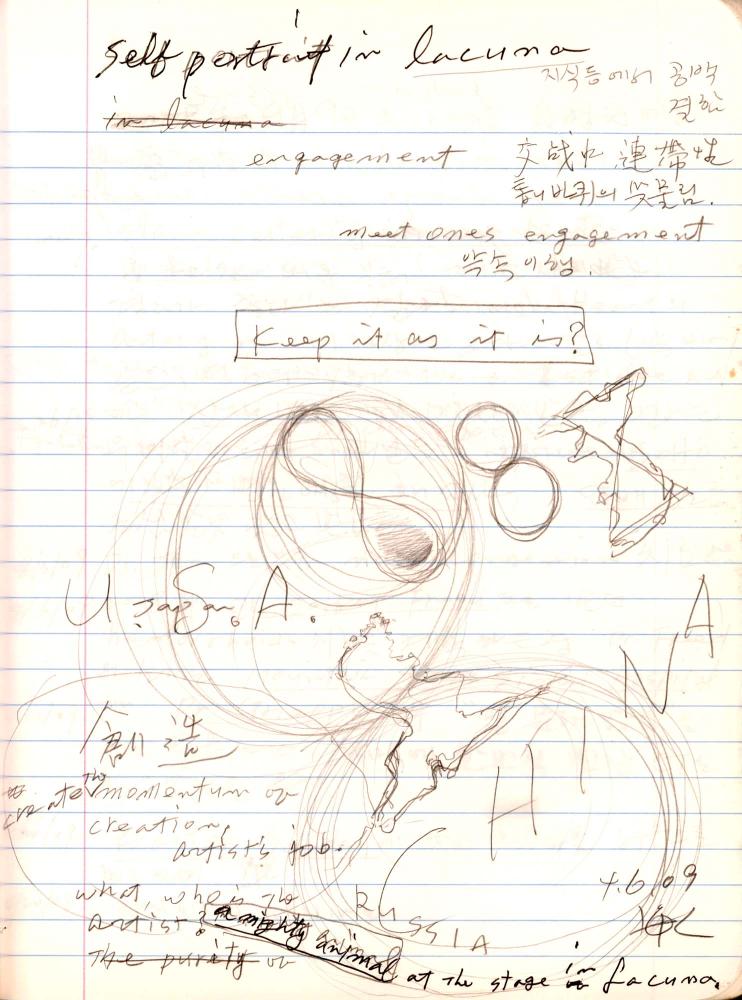 self portrait in lacuna
지식등에서 공백
결함
in lacuna
engagement 交战 連帶性
톱니바퀴의 맞물림.
meet ones engagement
약속이행.
Keep it as it is?
U. Japan, S. A.
CHINA
創造
create the momentum of
creation,
artist's job.
what, who is the
artist? a mighty animal at the stage in lacuna.
the purity of
RUSSIA
4.6.09